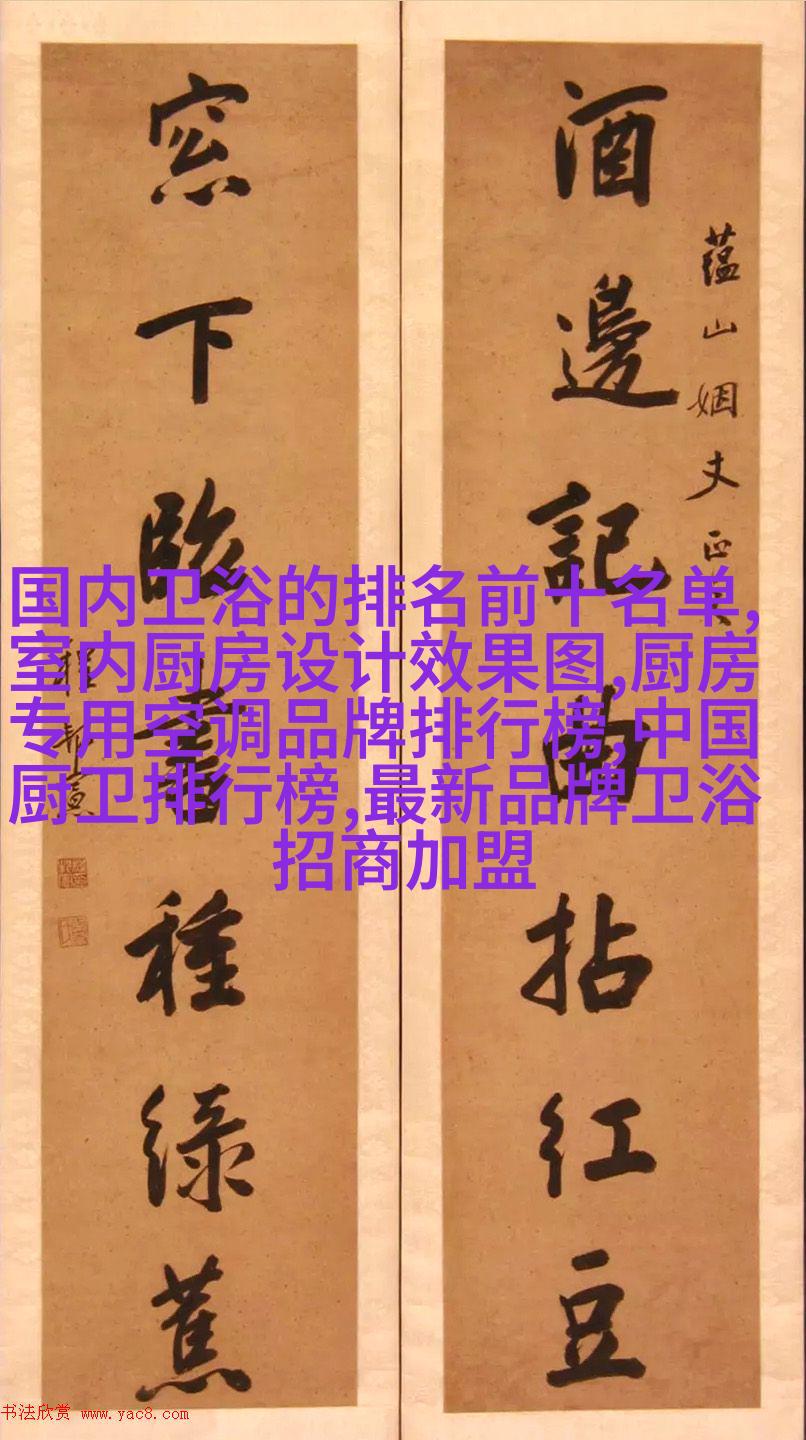 蘊山姻丈正
酒邊記曲拈紅豆
窓下臨書種綠蕉
国内卫浴的排名前十名单,
室内厨房设计效果图,厨房
专用空调品牌排行榜,中国
厨卫排行榜,最新品牌卫浴
招商加盟
书法欣赏 www.yac8.com